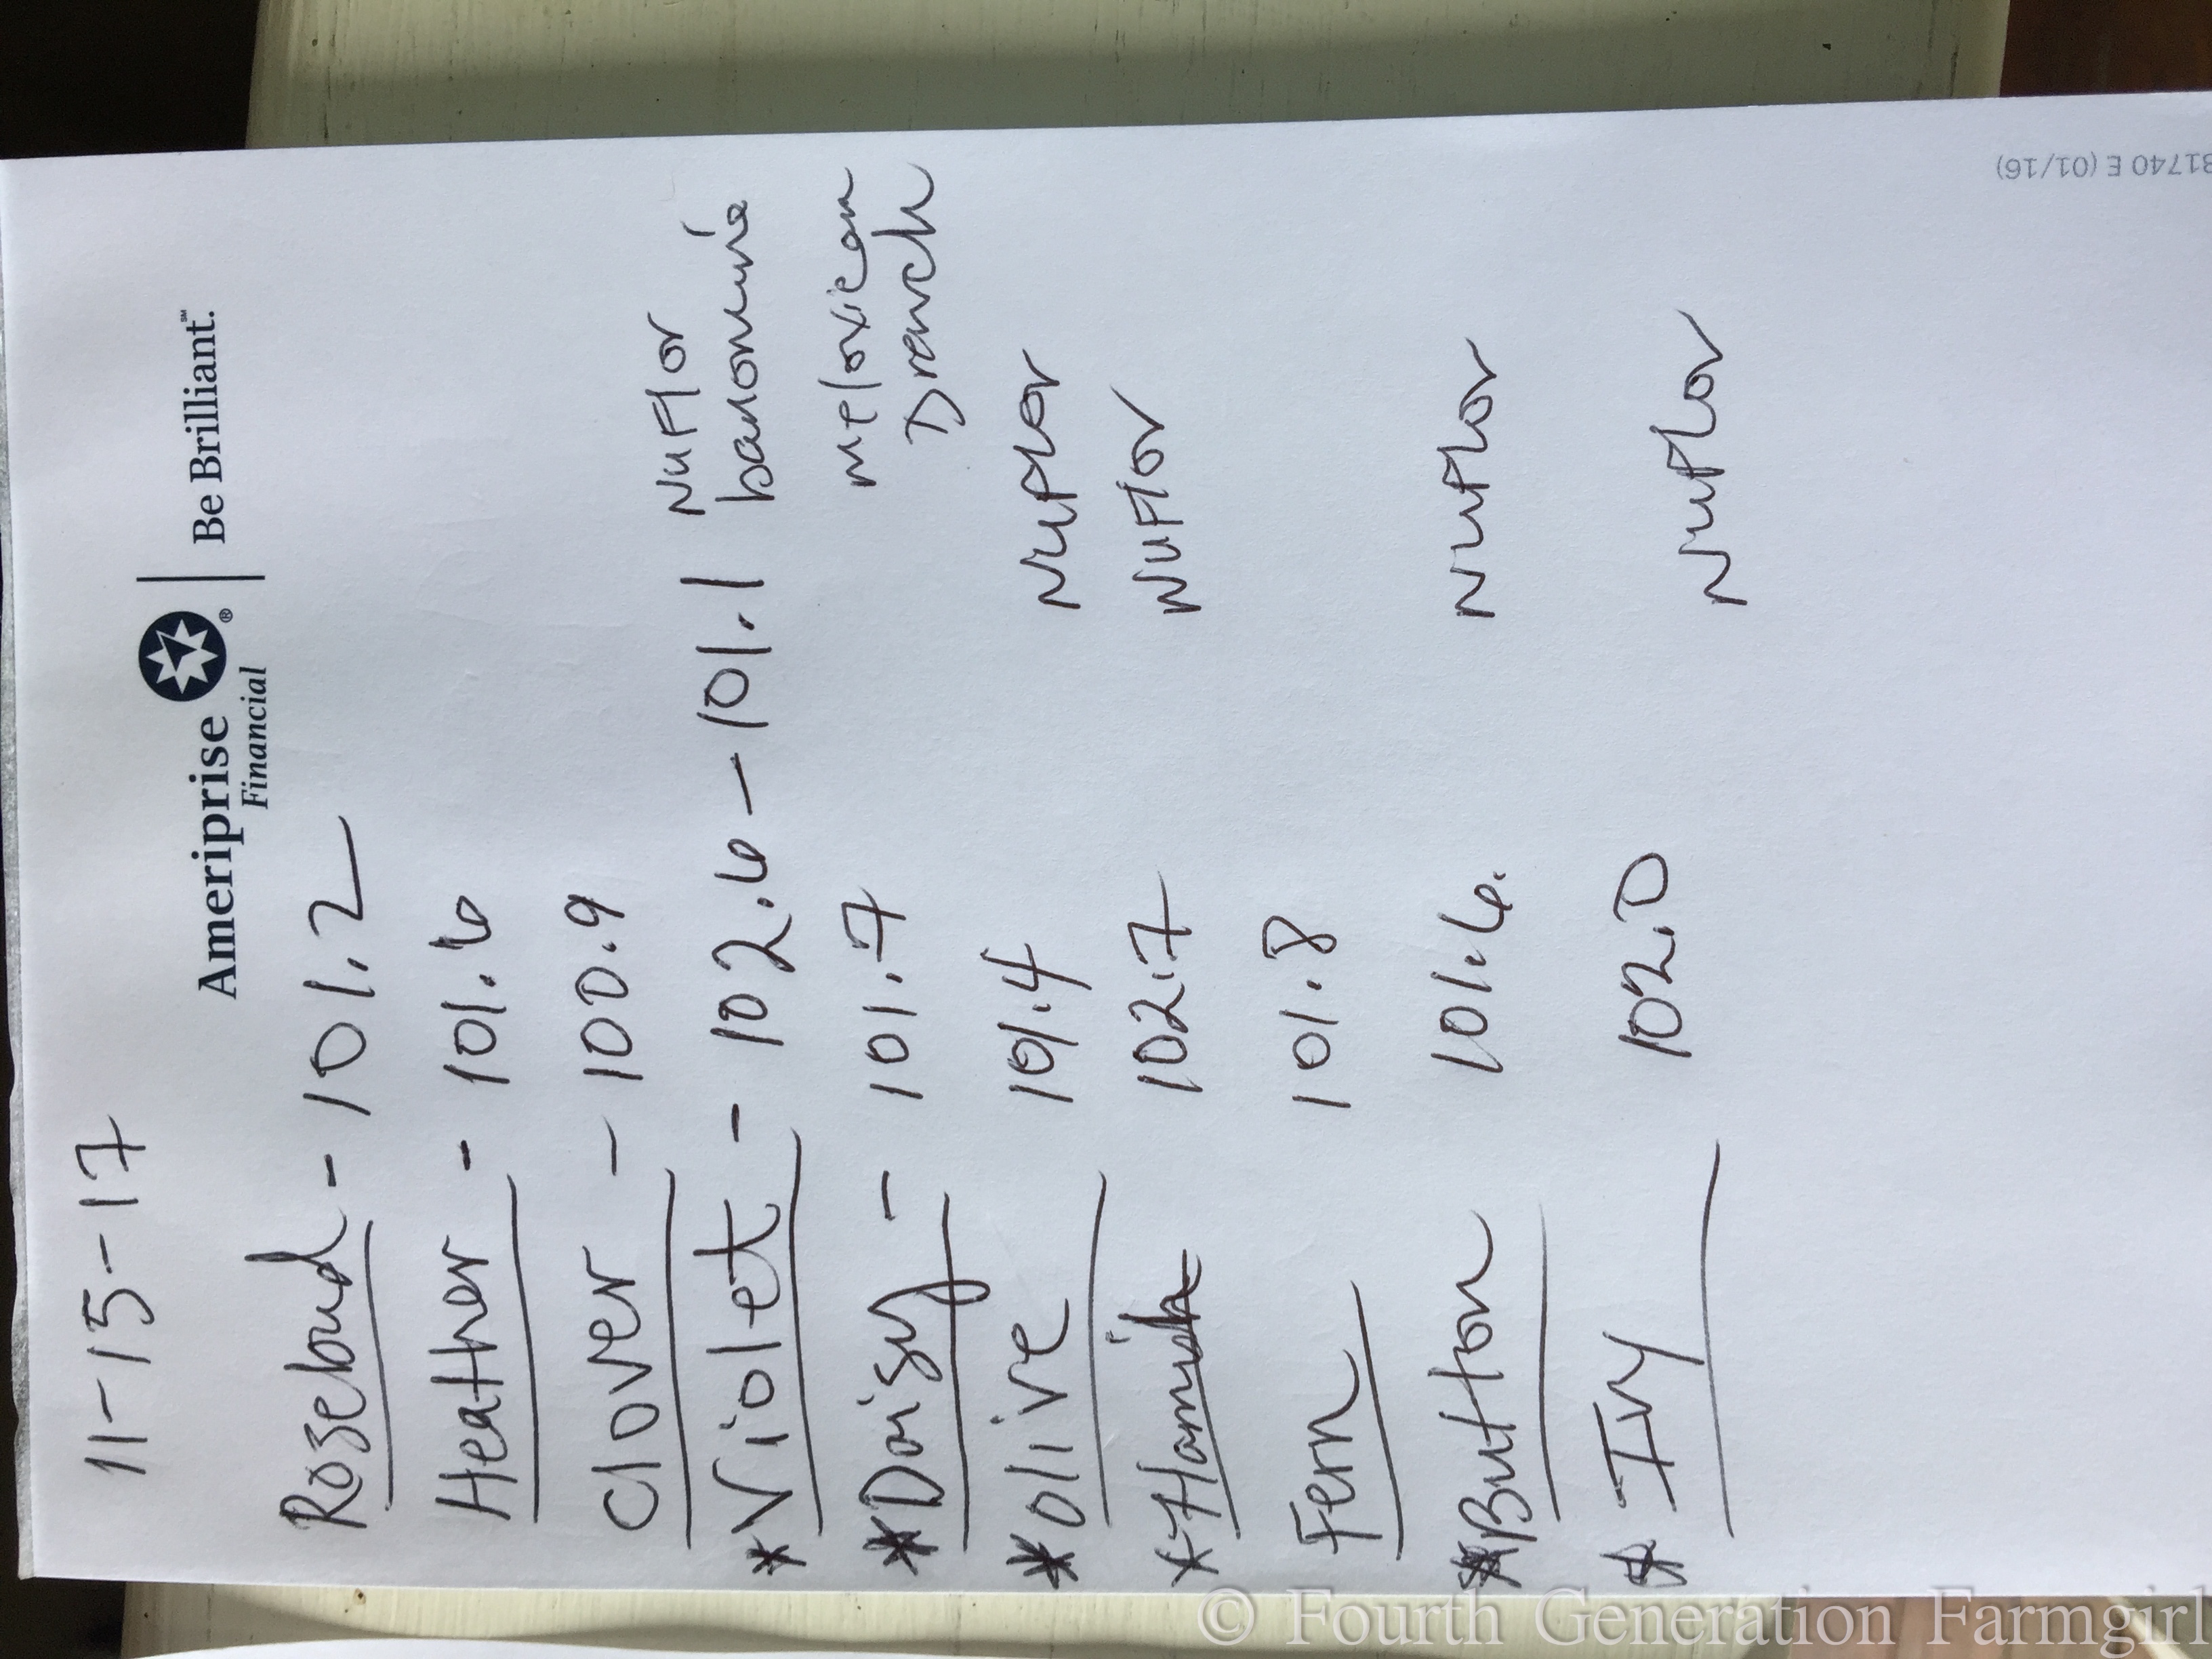 11-15-17
Ameriprise
Financial
®
Be Brilliant.℠
Rosebud - 101.2
Heather - 101.6
Clover - 100.9
NuFlor
* Violet - 102.6 - 101.1 banomine
* Daisy - 101.7 meloxicam
Drench
* olive 101.4 NuFlor
* Hamish 102.7 NuFlor
Fern 101.8
* Button 101.6. NuFlor
* Ivy 102.0 NuFlor
31740 E (01/16)
© Fourth Generation Farmgirl